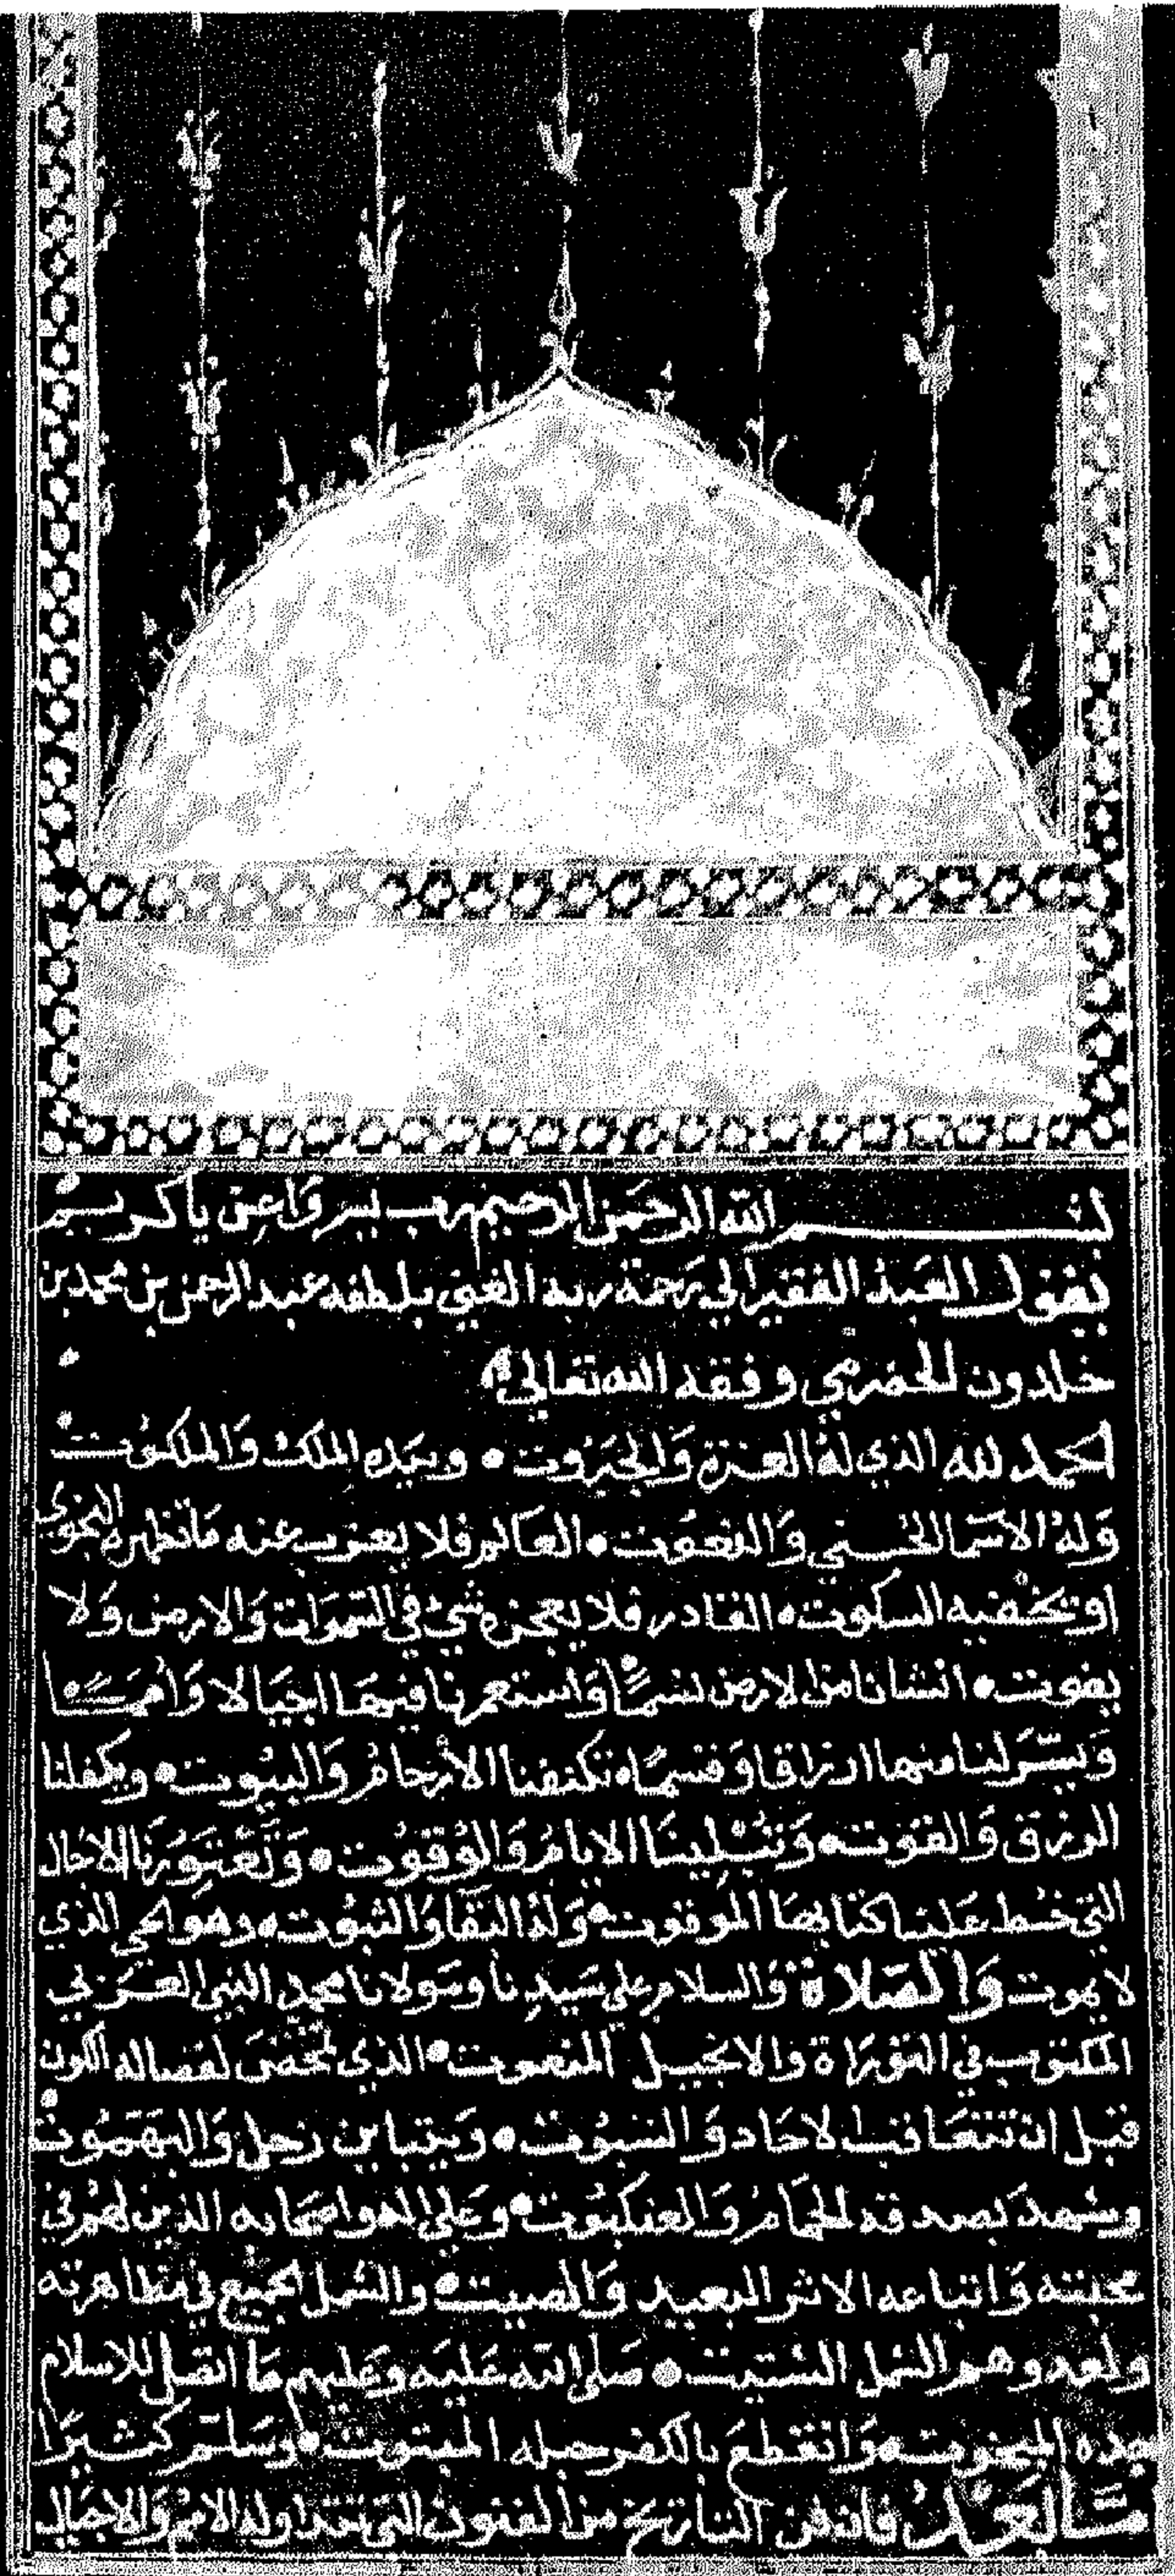 بسم الله الرحمن الرحيم رب يسر واعن يا كريم
يقول العبد الفقير الى رحمة ربه الغني بلطفه عبد الرحمن بن محمد بن
خلدون الحضرمي وفقه الله تعالى
الحمد لله الذي له العزة والجبروت • وبيده الملك والملكوت
وله الاسما الحسنى والنعوت • العالم فلا يعزب عنه ما تظهره النجوى
او تخفيه السكوت • القادر فلا يعجزه شئ في السموات والارض ولا
يفوت • انشانا من الارض نسما واستعمرنا فيها اجيالا وامما
ويسر لنا منها ارزاقا وقسما • تكنفنا الارحام والبيوت • ويكفلنا
الرزق والقوت • وتبلينا الايام والوقوت • وتعتورنا الاجال
التي خط علينا كتابها الموقوت • وله البقا والثبوت • وهو الحي الذي
لا يموت والصلاة والسلام على سيدنا ومولانا محمد النبي العربي
المكتوب في التوراة والانجيل المنعوت • الذي تمخض لفصاله الكون
قبل ان تتعاقب الاحاد والسبوت • ويتباين زحل والبهموت
وشهد بصدقه الحمام والعنكبوت • وعلى اله واصحابه الذين لهم في
محبته واتباعه الاثر البعيد والصيت • والشمل الجميع في مظاهرته
ولعدوهم الشمل الشتيت • صلى الله عليه وعليهم ما اتصل للاسلام
جده المبخوت • وانقطع بالكفر حبله المبتوت • وسلم كثيرا
اما بعد فان فن التاريخ من الفنون التي تتداوله الامم والاجيال